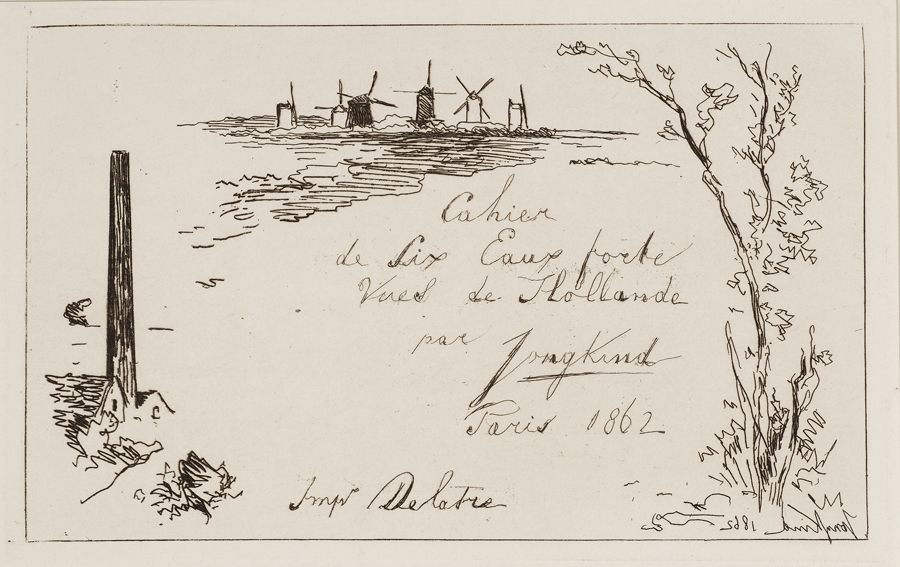 Cahier
de Six Eaux forte
Vues de Hollande
par Jongkind
Paris 1862
Impr Delatre
1862 Jongkind